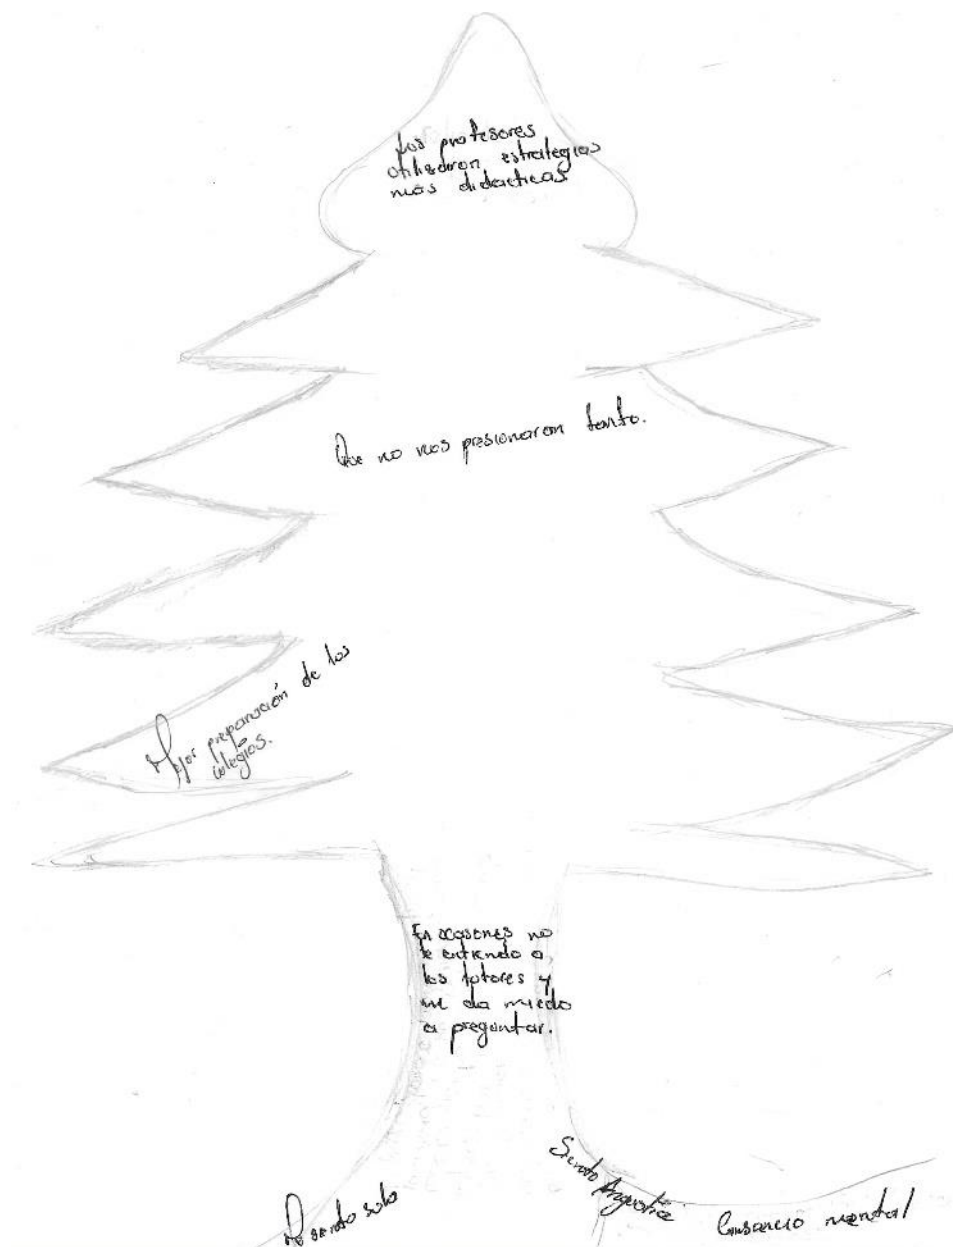 Los profesores
utilizaron estrategias
más didacticas
Que no nos presionaron tanto.
Mejor preparación de los
colegios.
En ocasiones no
le entiendo a
los tutores y
me da miedo
a preguntar.
Me siento solo
Siento Angustia
Cansancio mental